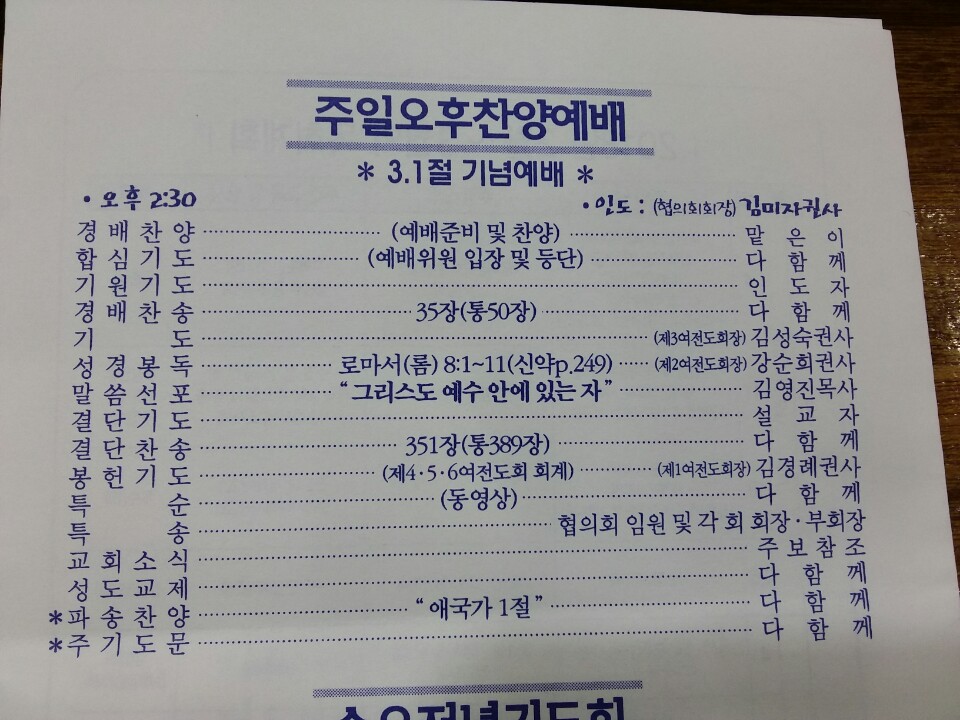 주일오후찬양예배
* 3.1절 기념예배 *
• 오후 2:30 • 인도 : (협의회회장) 김미자권사
경배찬양 (예배준비 및 찬양) 맡은이
합심기도 (예배위원 입장 및 등단) 다함께
기원기도 인도자
경배찬송 35장(통50장) 다함께
기도 (제3여전도회장) 김성숙권사
성경봉독 로마서(롬) 8:1~11(신약p.249) (제2여전도회장) 강순희권사
말씀선포 “그리스도 예수 안에 있는 자” 김영진목사
결단기도 설교자
결단찬송 351장(통389장) 다함께
봉헌기도 (제4·5·6여전도회 회계) (제1여전도회장) 김경례권사
특순 (동영상) 다함께
특송 협의회 임원 및 각 회 회장·부회장
교회소식 주보참조
성도교제 다함께
*파송찬양 “애국가 1절” 다함께
*주기도문 다함께